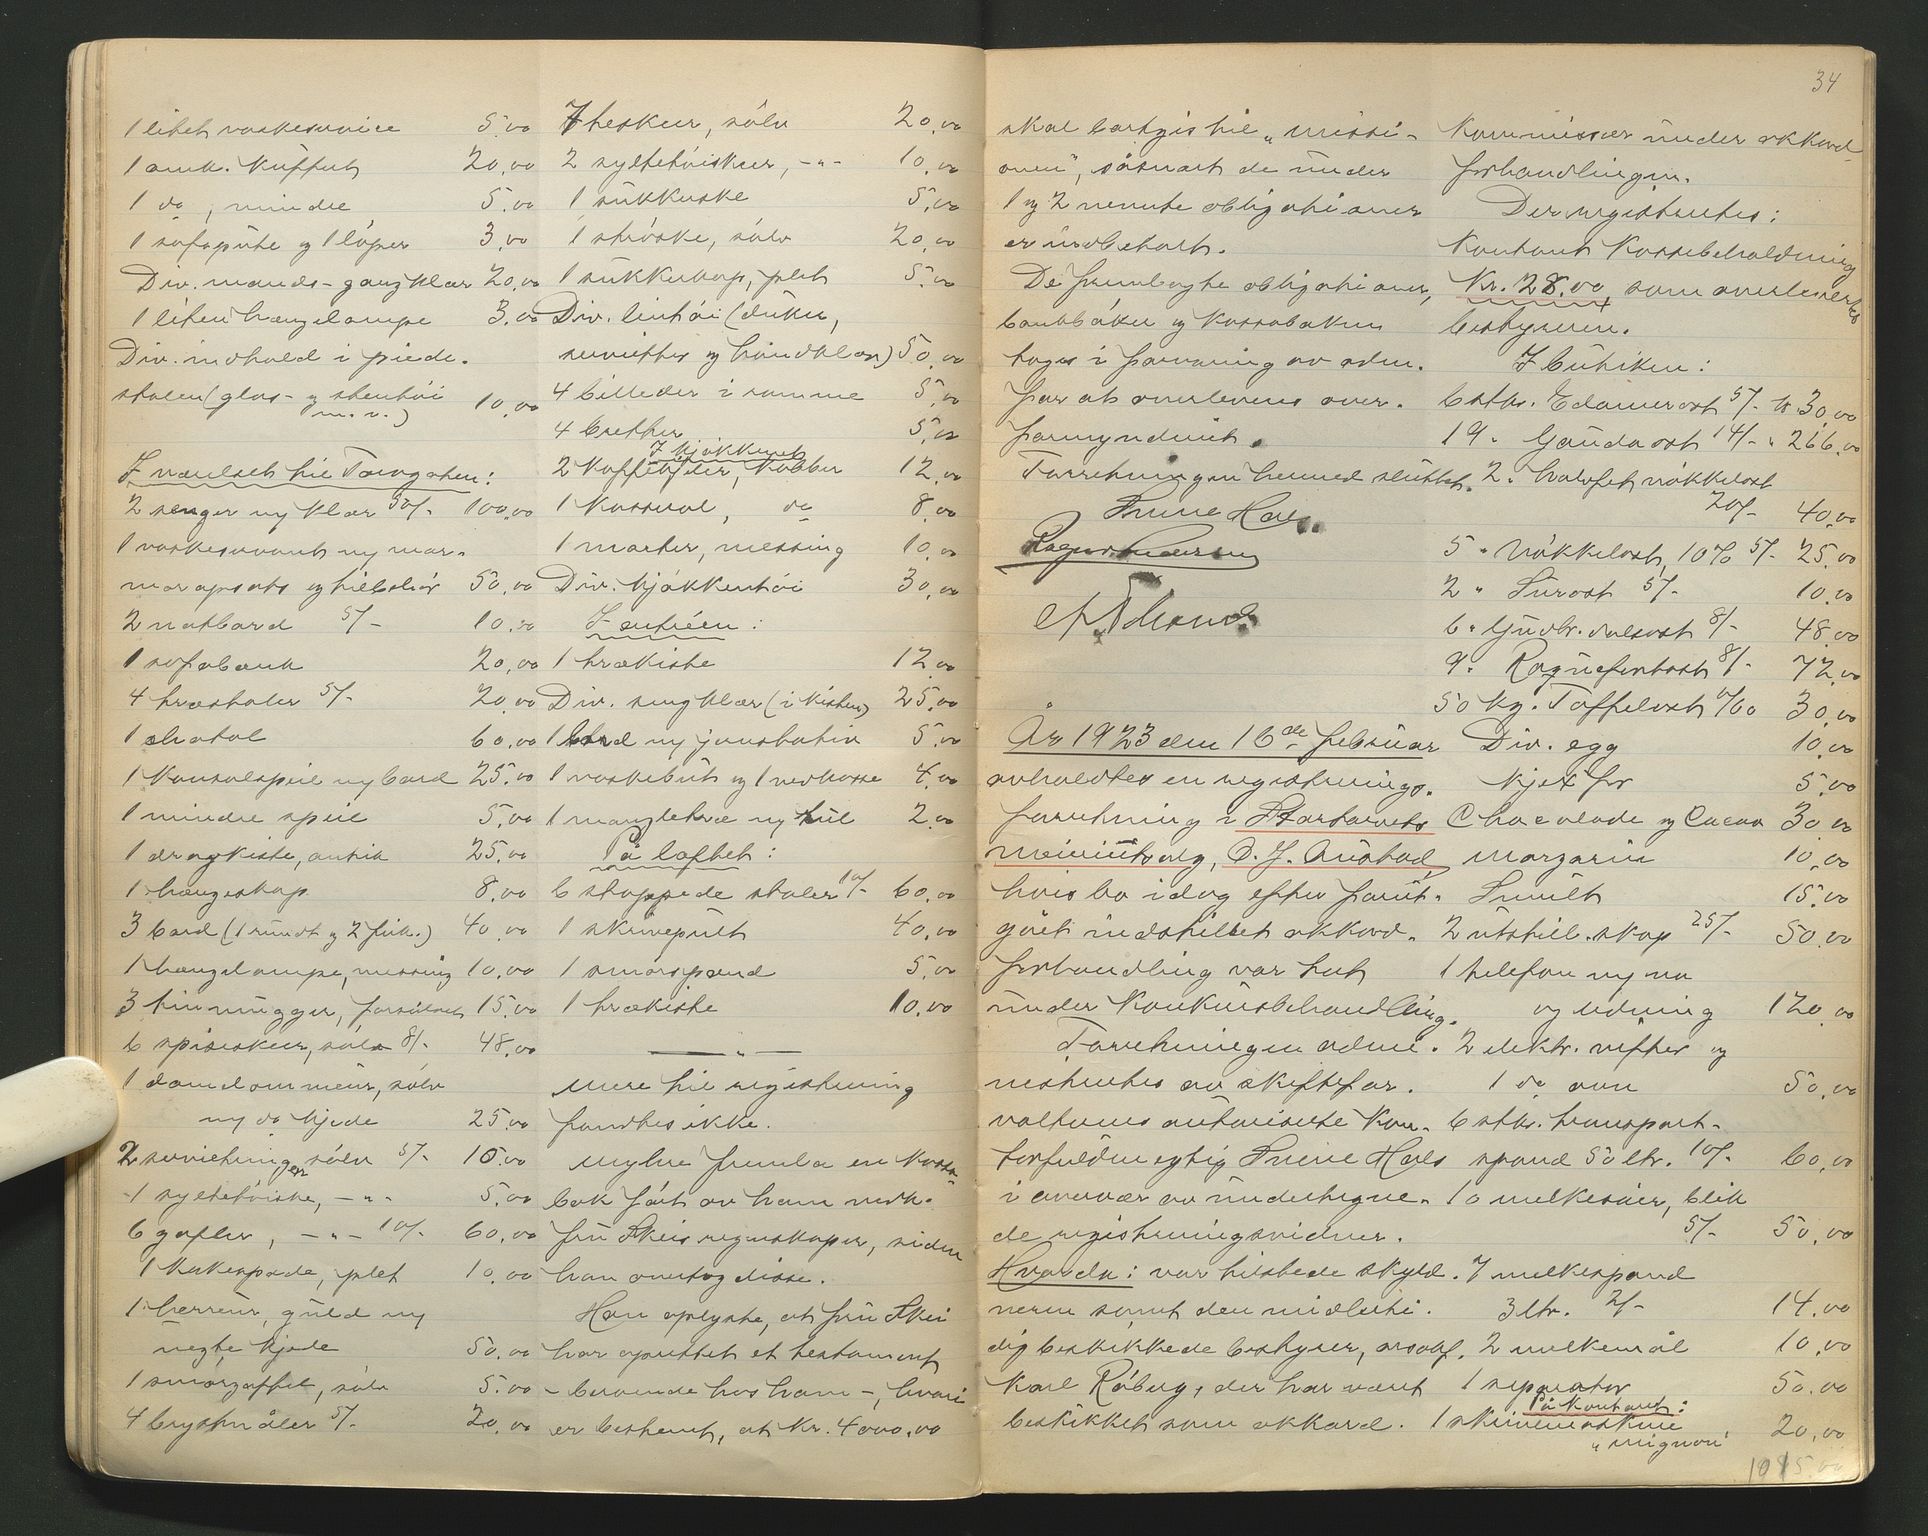 1 litet vaskeservice 5.00
1 amk. kuffert 20.00
1 do, mindre 5.00
1 sofapute og 1 løper 3.00
Div. mands-gangklær 20.00
1 liten hængelampe 3.00
Div. indhold i piede-
stalen (glas- og stentøi
m.v.) 10.00
I værelset til Torvgaten:
2 senger m/klær 50/- 100.00
1 vaskeservant m/mar-
moropsats og tilbehør 50.00
2 natbord 5/- 10.00
1 sofabænk 20.00
4 træstoler 5/- 20.00
1 chatol 60.00
1 konsolspeil m/bord 25.00
1 mindre speil 5.00
1 dragkiste, antik 25.00
1 hængeskap 8.00
3 bord (1 rundt og 2 firk.) 40.00
1 hængelampe, messing 10.00
3 tinmugger, forsølvet 15.00
6 spiseskeer, sølv 8/- 48.00
1 dameommeur, sølv
m/do kjede 25.00
2 servietringer, sølv 5/- 10.00
1 syltetøiske, -"- 5.00
6 gafler, -"- 10/- 60.00
1 kakespade, plet 10.00
1 herreur, guld m/
uegte kjede 50.00
1 smørgaffel, sølv 5.00
4 brystnåler 5/- 20.00
7 theskeer, sølv 20.00
2 syltetøiskeer, -"- 10.00
1 sukkerske 5.00
1 strøske, sølv 20.00
1 sukkerkop, plet 5.00
Div. lintøi (duker,
servietter og håndklær) 50.00
4 billeder i ramme 5.00
4 bretter 5.00
I kjøkkenet
2 kaffekjeler, kobber 12.00
1 kasserol, do 8.00
1 morter, messing 10.00
Div. kjøkkentøi 30.00
I entréen:
1 trækiste 12.00
Div. sengklær (i kisten) 25.00
1 bord m/jernstativ 5.00
1 vaskebut og 1 vedkasse 4.00
1 mangletræ m/rul 2.00
På loftet:
6 stoppede stoler 10/- 60.00
1 skrivepult 40.00
1 smørspand 5.00
1 trækiste 10.00
— " —
Mere til registrering
fandtes ikke.
Myhre fremla en kassa-
bok ført av ham vedk.
fru Skeis regnskaper, siden
han overtog disse.
Han oplyste, at fru Skei
har oprettet et testament
- beroende hos ham -, hvori
er bestemt, at kr. 4000,00
34
skal bortgis til "missi-
onen", såsnart de under
1 og 2 nevnte obligationer
er indbetalt.
De fremlagte obligationer,
bankbøker og kassaboken
toges i forvaring av adm.
for at overleveres over-
formynderiet.
Forretningen hermed sluttet.
Trine Hals
År 1923 den 16de februar
avholdtes en registrerings-
forretning i Stortorvets
meieriutsalg, O. J. Austad,
hvis bo idag efter forut-
gåët indstillet akkord-
forhandling var tat
under konkursbehandling.
Forretningen admi-
nistrertes av skiftefor-
valterens autoriserte kon-
torfuldmegtig Trine Hals
i overvær av undertegne-
de registreringsvidner.
Hvorda: var tilstede skyld-
neren samt den midlerti-
dig beskikkede bestyrer, orsakf.
Karl Røberg, der har været
beskikket som akkord-
kommissær under akkord-
forhandlingen.
Der registrertes:
Kontant kassebeholdning
Kr. 28.00 som overleveres
bestyreren.
I butiken:
6 stks. Edamerost 5/- kr. 30.00
19 " Gaudaost 14/- " 266.00
2 " halvfet nøkkelost
20/- 40.00
5 " Nøkkelost, 10% 5/- 25.00
2 " Surost 5/- 10.00
6 " Gudbr.dalsost 8/- 48.00
9 " Roquefortost 8/- 72.00
50 kg. Taffelost 0/60 30.00
Div. egg 10.00
kjex for 5.00
Chocolade og Cacao 30.00
Margarin 10.00
Smult 15.00
2 utstill.skap 25/- 50.00
1 telefon m/no
og ledning 120.00
2 elektr. vifter og
1 do ovn 50.00
6 stks. transport-
spand 50 ltr. 10/- 60.00
10 melkesier, blik
5/- 50.00
7 melkespand
3 ltr. 2/- 14.00
2 melkemål 10.00
1 separator 50.00
På kontoret:
1 skrivemaskine
"Mignon" 20.00
1015.00